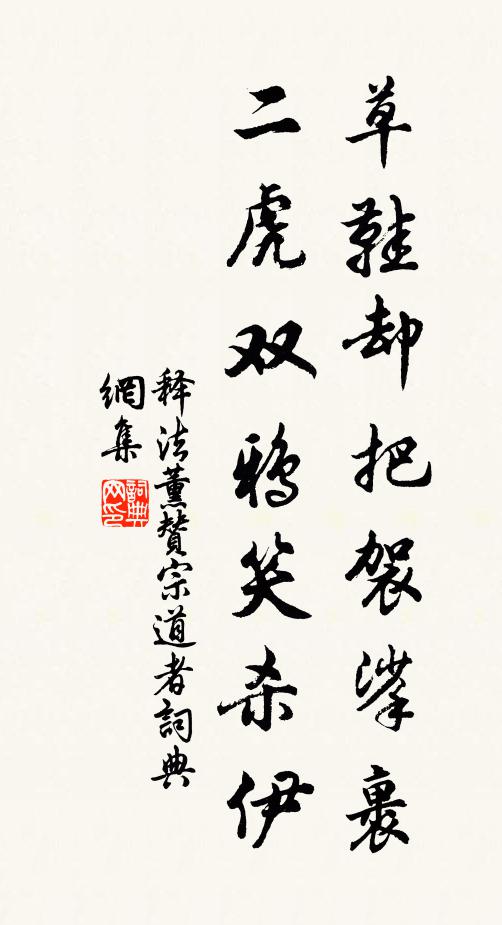 草鞋却把袈裟裹
二虎双鸦笑杀伊
释法薰赞宗道者詞典
網集
詞典网印